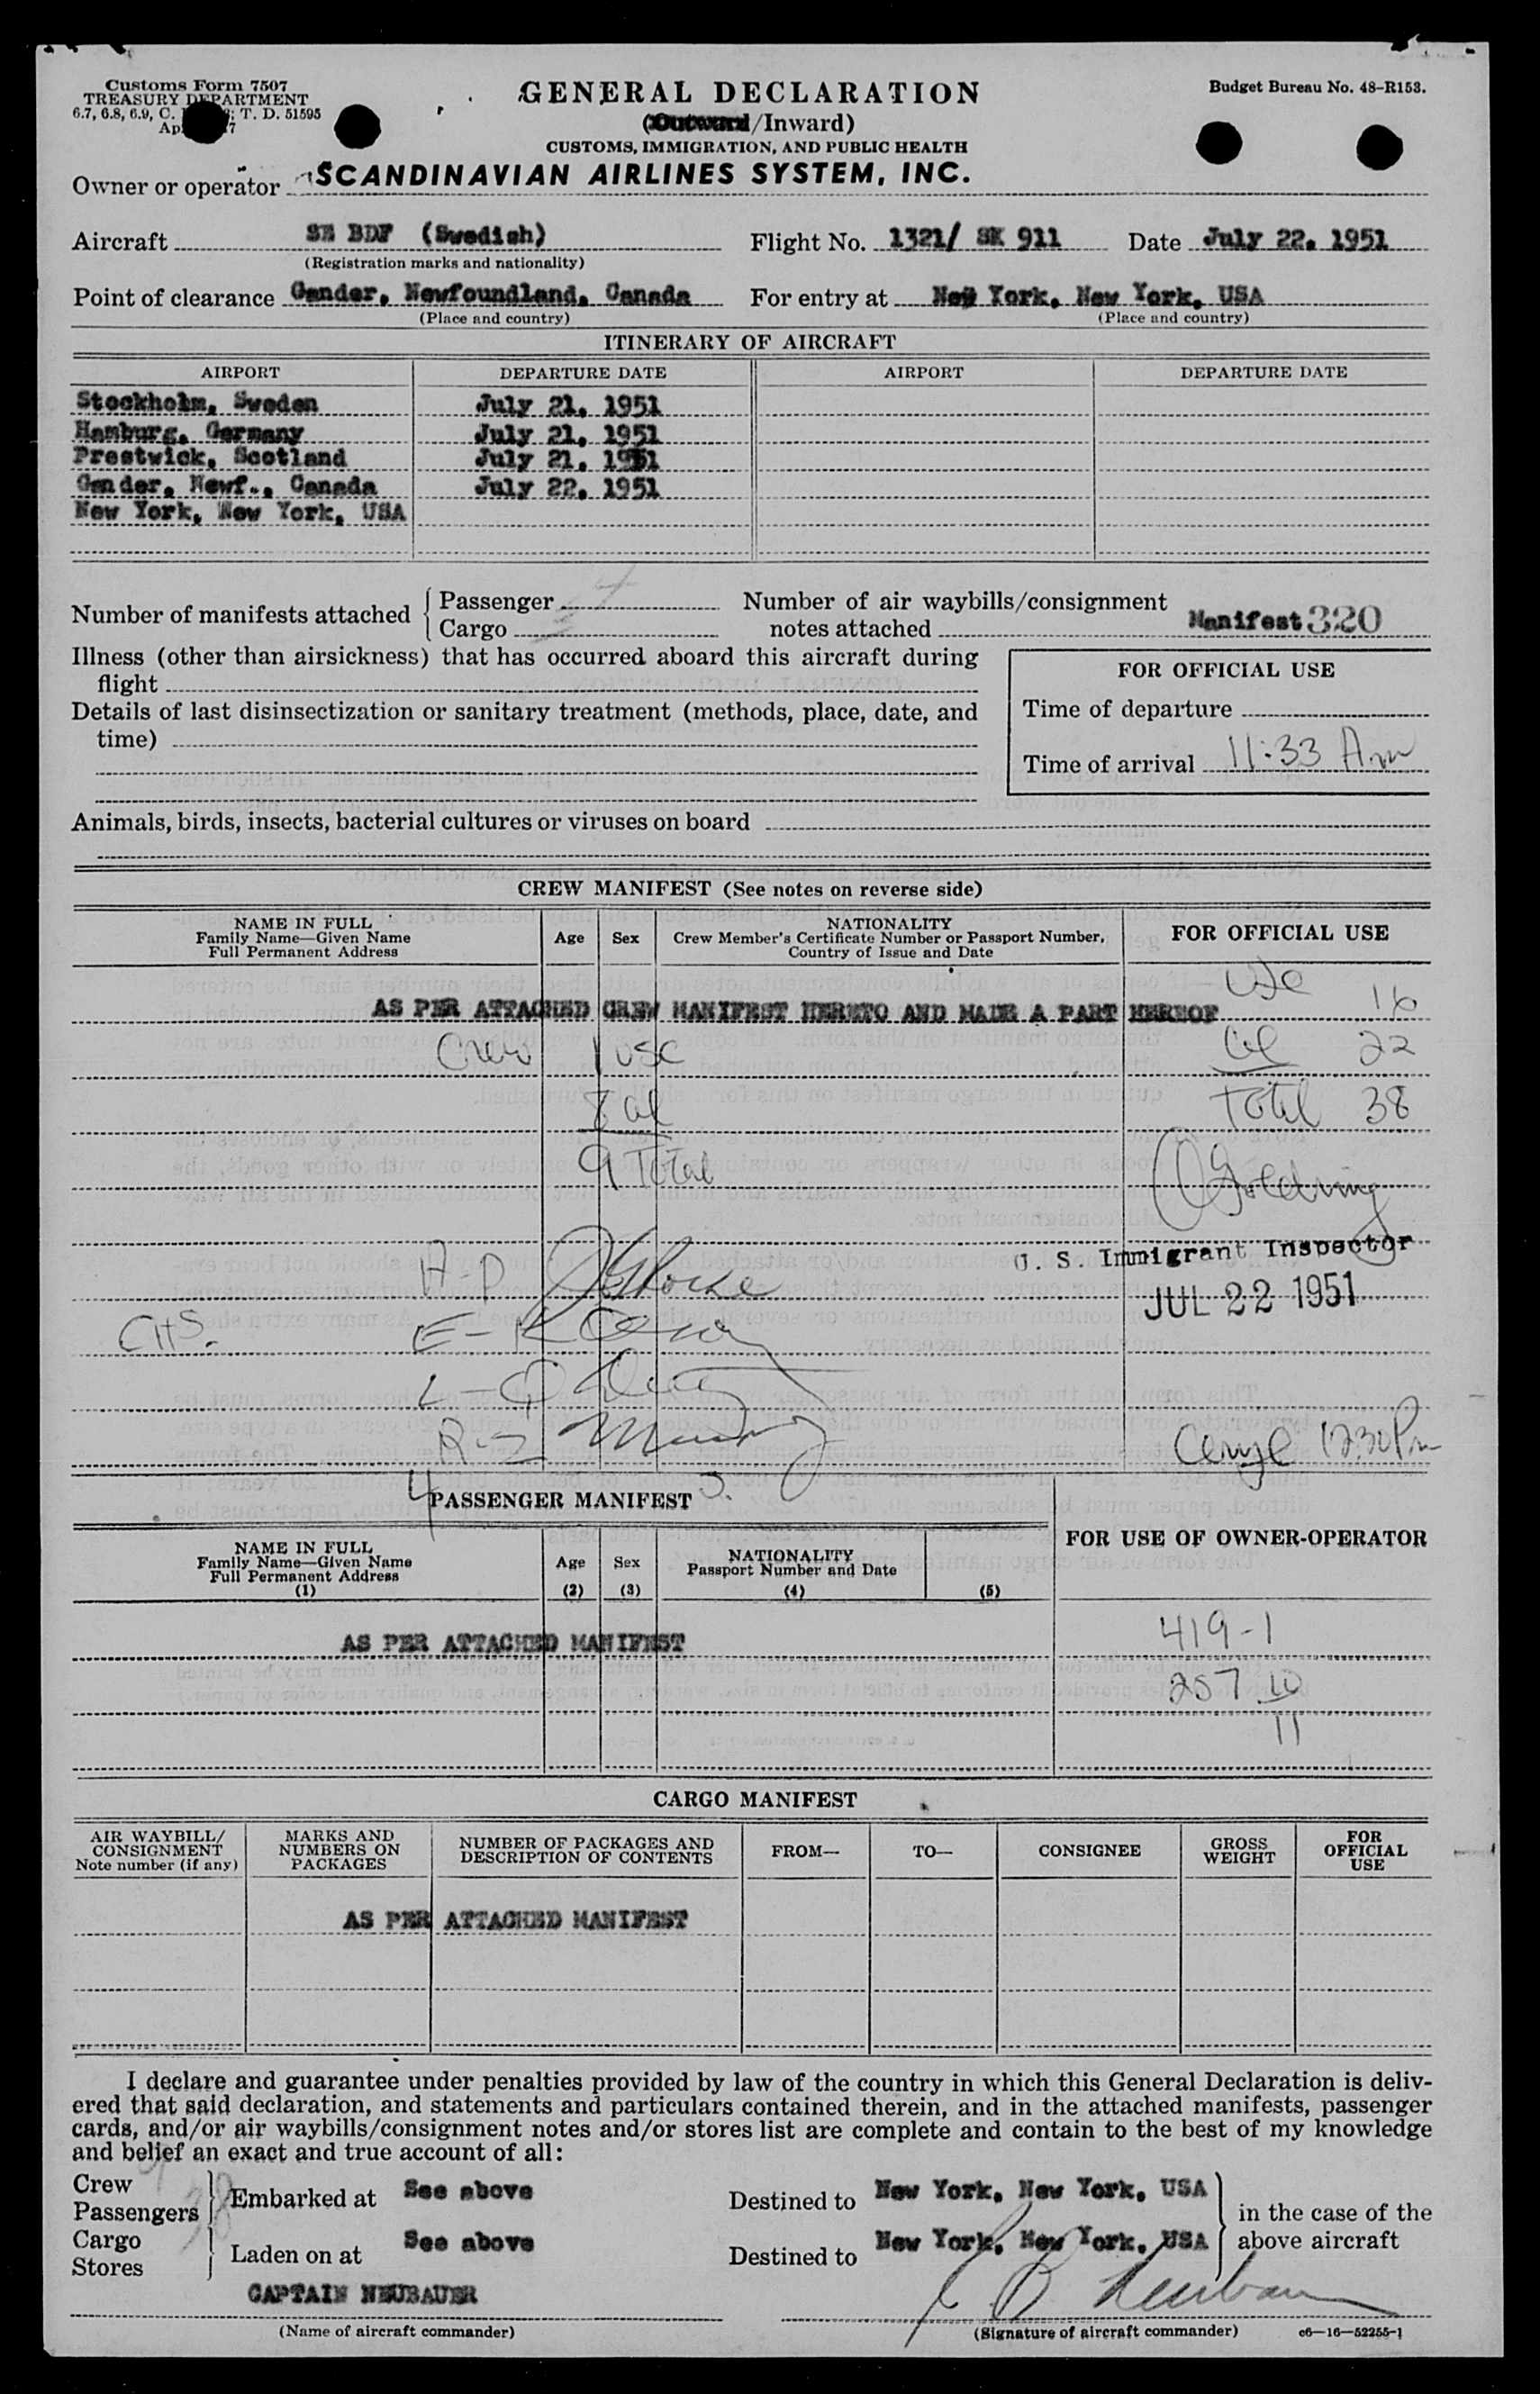 Customs Form 7507
TREASURY DEPARTMENT
6.7, 6.8, 6.9, C. T. D. 51595
GENERAL DECLARATION
(Outward/Inward)
CUSTOMS, IMMIGRATION, AND PUBLIC HEALTH
Budget Bureau No. 48-R153.
Owner or operator SCANDINAVIAN AIRLINES SYSTEM, INC.
Aircraft SE BDF (Swedish) Flight No. 1321/ SK 911 Date July 22. 1951
(Registration marks and nationality)
Point of clearance Gander, Newfoundland, Canada For entry at New York, New York, USA
(Place and country) (Place and country)
ITINERARY OF AIRCRAFT
AIRPORT DEPARTURE DATE AIRPORT DEPARTURE DATE
Stockholm, Sweden July 21, 1951
Hamburg, Germany July 21, 1951
Prestwick, Scotland July 21, 1951
Gander, Newf., Canada July 22, 1951
New York, New York, USA
Number of manifests attached { Passenger 4
Cargo
Number of air waybills/consignment
notes attached Manifest 320
Illness (other than airsickness) that has occurred aboard this aircraft during
flight
Details of last disinsectization or sanitary treatment (methods, place, date, and
time)
FOR OFFICIAL USE
Time of departure
Time of arrival 11:33 Am
Animals, birds, insects, bacterial cultures or viruses on board
CREW MANIFEST (See notes on reverse side)
NAME IN FULL
Family Name—Given Name
Full Permanent Address
Age
Sex
NATIONALITY
Crew Member's Certificate Number or Passport Number,
Country of Issue and Date
FOR OFFICIAL USE
AS PER ATTACHED CREW MANIFEST HERETO AND MADE A PART HEREOF
USC 16
Crew 1 USC
al 22
8 al
Total 38
9 Total
U. S. Immigrant Inspector
JUL 22 1951
CHS.
12:30 Pm
4 PASSENGER MANIFEST
NAME IN FULL
Family Name—Given Name
Full Permanent Address
(1)
Age
(2)
Sex
(3)
NATIONALITY
Passport Number and Date
(4)
(5)
FOR USE OF OWNER-OPERATOR
AS PER ATTACHED MANIFEST
419-1
257 10
11
CARGO MANIFEST
AIR WAYBILL/
CONSIGNMENT
Note number (if any)
MARKS AND
NUMBERS ON
PACKAGES
NUMBER OF PACKAGES AND
DESCRIPTION OF CONTENTS
FROM—
TO—
CONSIGNEE
GROSS
WEIGHT
FOR
OFFICIAL
USE
AS PER ATTACHED MANIFEST
I declare and guarantee under penalties provided by law of the country in which this General Declaration is deliv-
ered that said declaration, and statements and particulars contained therein, and in the attached manifests, passenger
cards, and/or air waybills/consignment notes and/or stores list are complete and contain to the best of my knowledge
and belief an exact and true account of all:
Crew
Passengers } Embarked at See above Destined to New York, New York, USA
Cargo
Stores } Laden on at See above Destined to New York, New York, USA
in the case of the
above aircraft
CAPTAIN NEUBAUER
(Name of aircraft commander) (Signature of aircraft commander) c6—16—52255-1